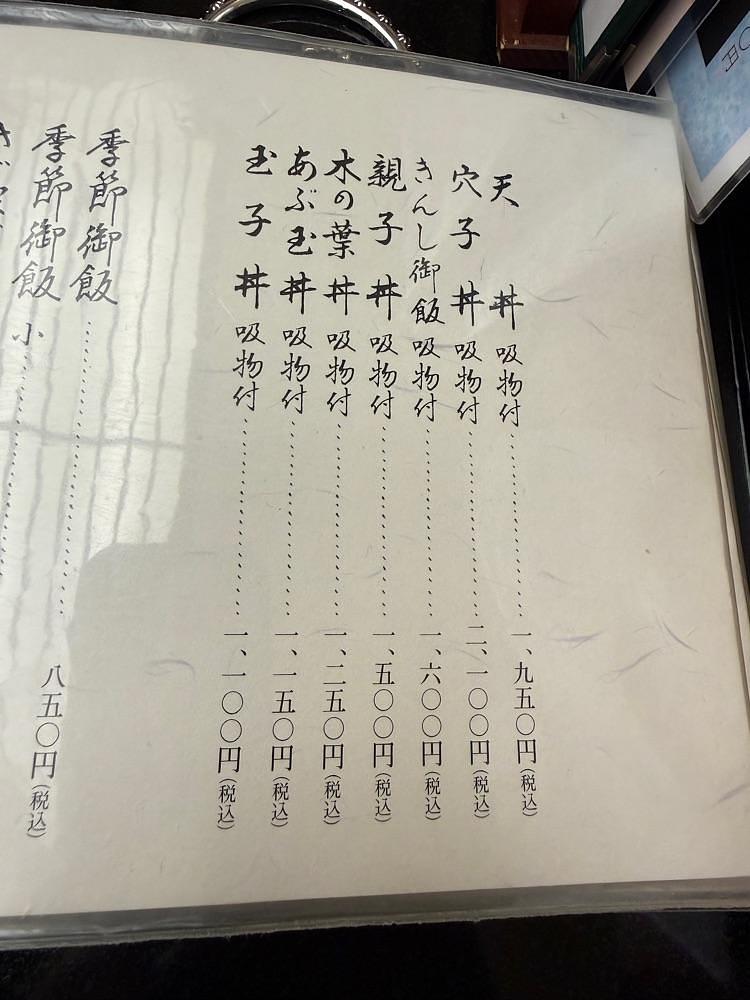 天丼 吸物付 一、九五〇円(税込)
穴子丼 吸物付 二、一〇〇円(税込)
きんし御飯 吸物付 一、六〇〇円(税込)
親子丼 吸物付 一、五〇〇円(税込)
木の葉丼 吸物付 一、二五〇円(税込)
あぶ玉丼 吸物付 一、一五〇円(税込)
玉子丼 吸物付 一、一〇〇円(税込)
季節御飯 八五〇円(税込)
季節御飯 小